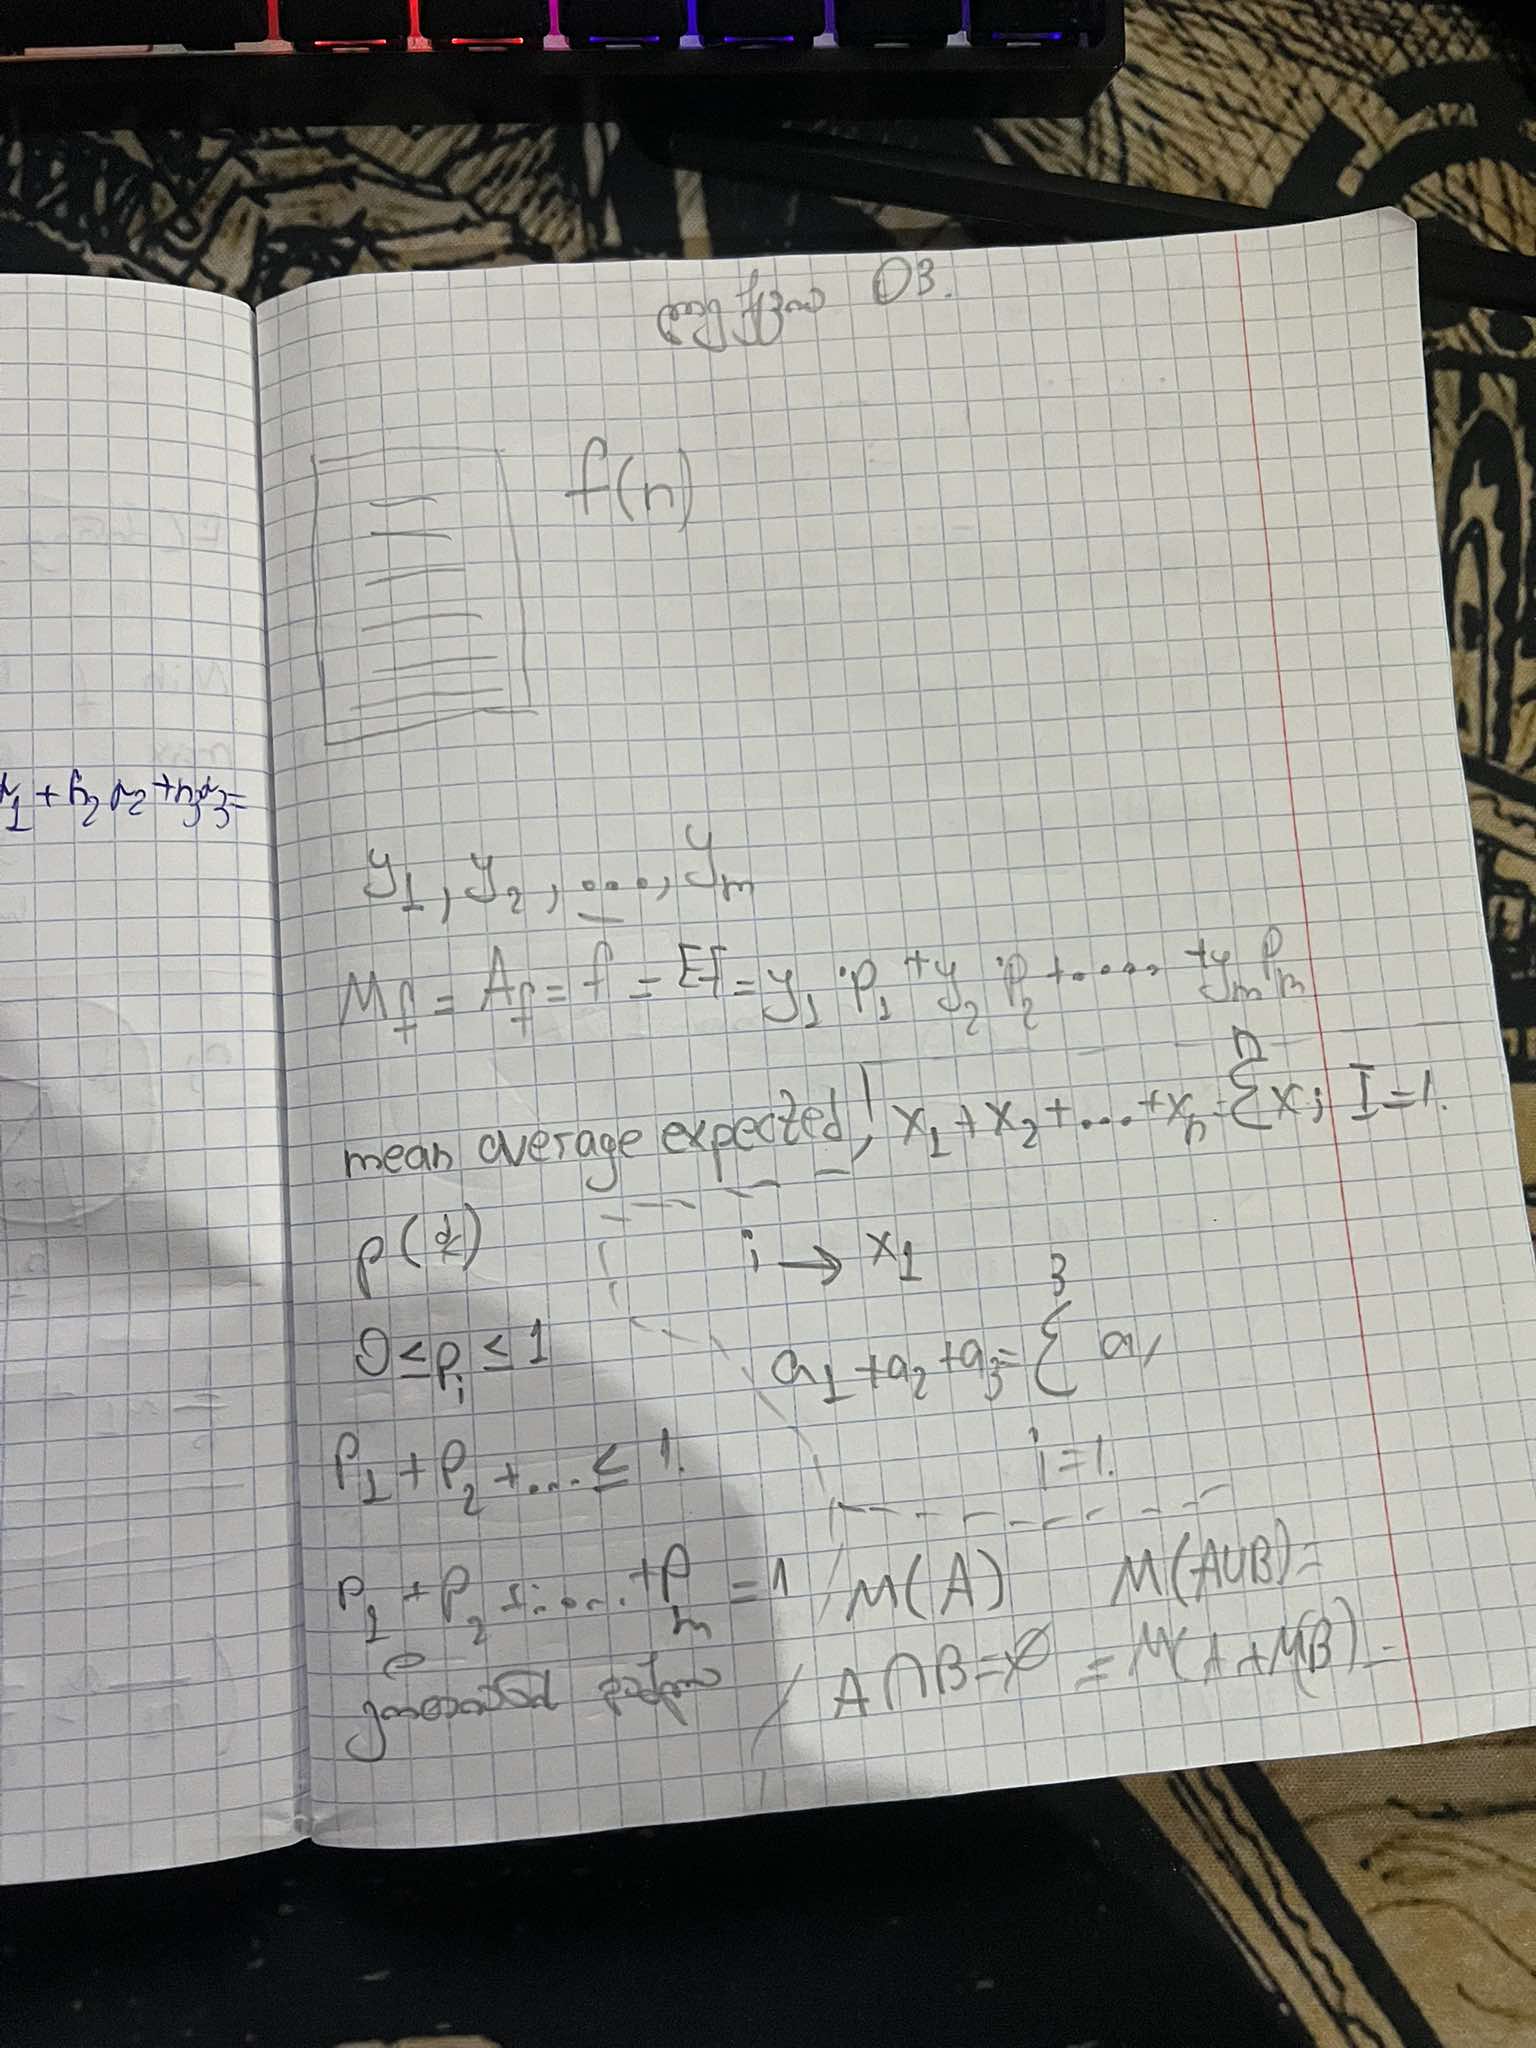 03.
f(n)
α1 + p2 α2 + p3 α3 =
y1, y2, ..., ym
Mf = Af = f = Ef = y1 · p1 + y2 · p2 + ..... + ym pm
mean average expected, x1 + x2 + ... + xn = Σ xi I=1.
n
i → x1
0 ≤ pi ≤ 1
a1 + a2 + a3 = Σ ai
3
i=1.
P1 + P2 + .... ≤ 1.
P1 + P2 + ..... + Pm = 1
M(A) M(A∪B) =
A∩B=∅ = M(A + M(B) =